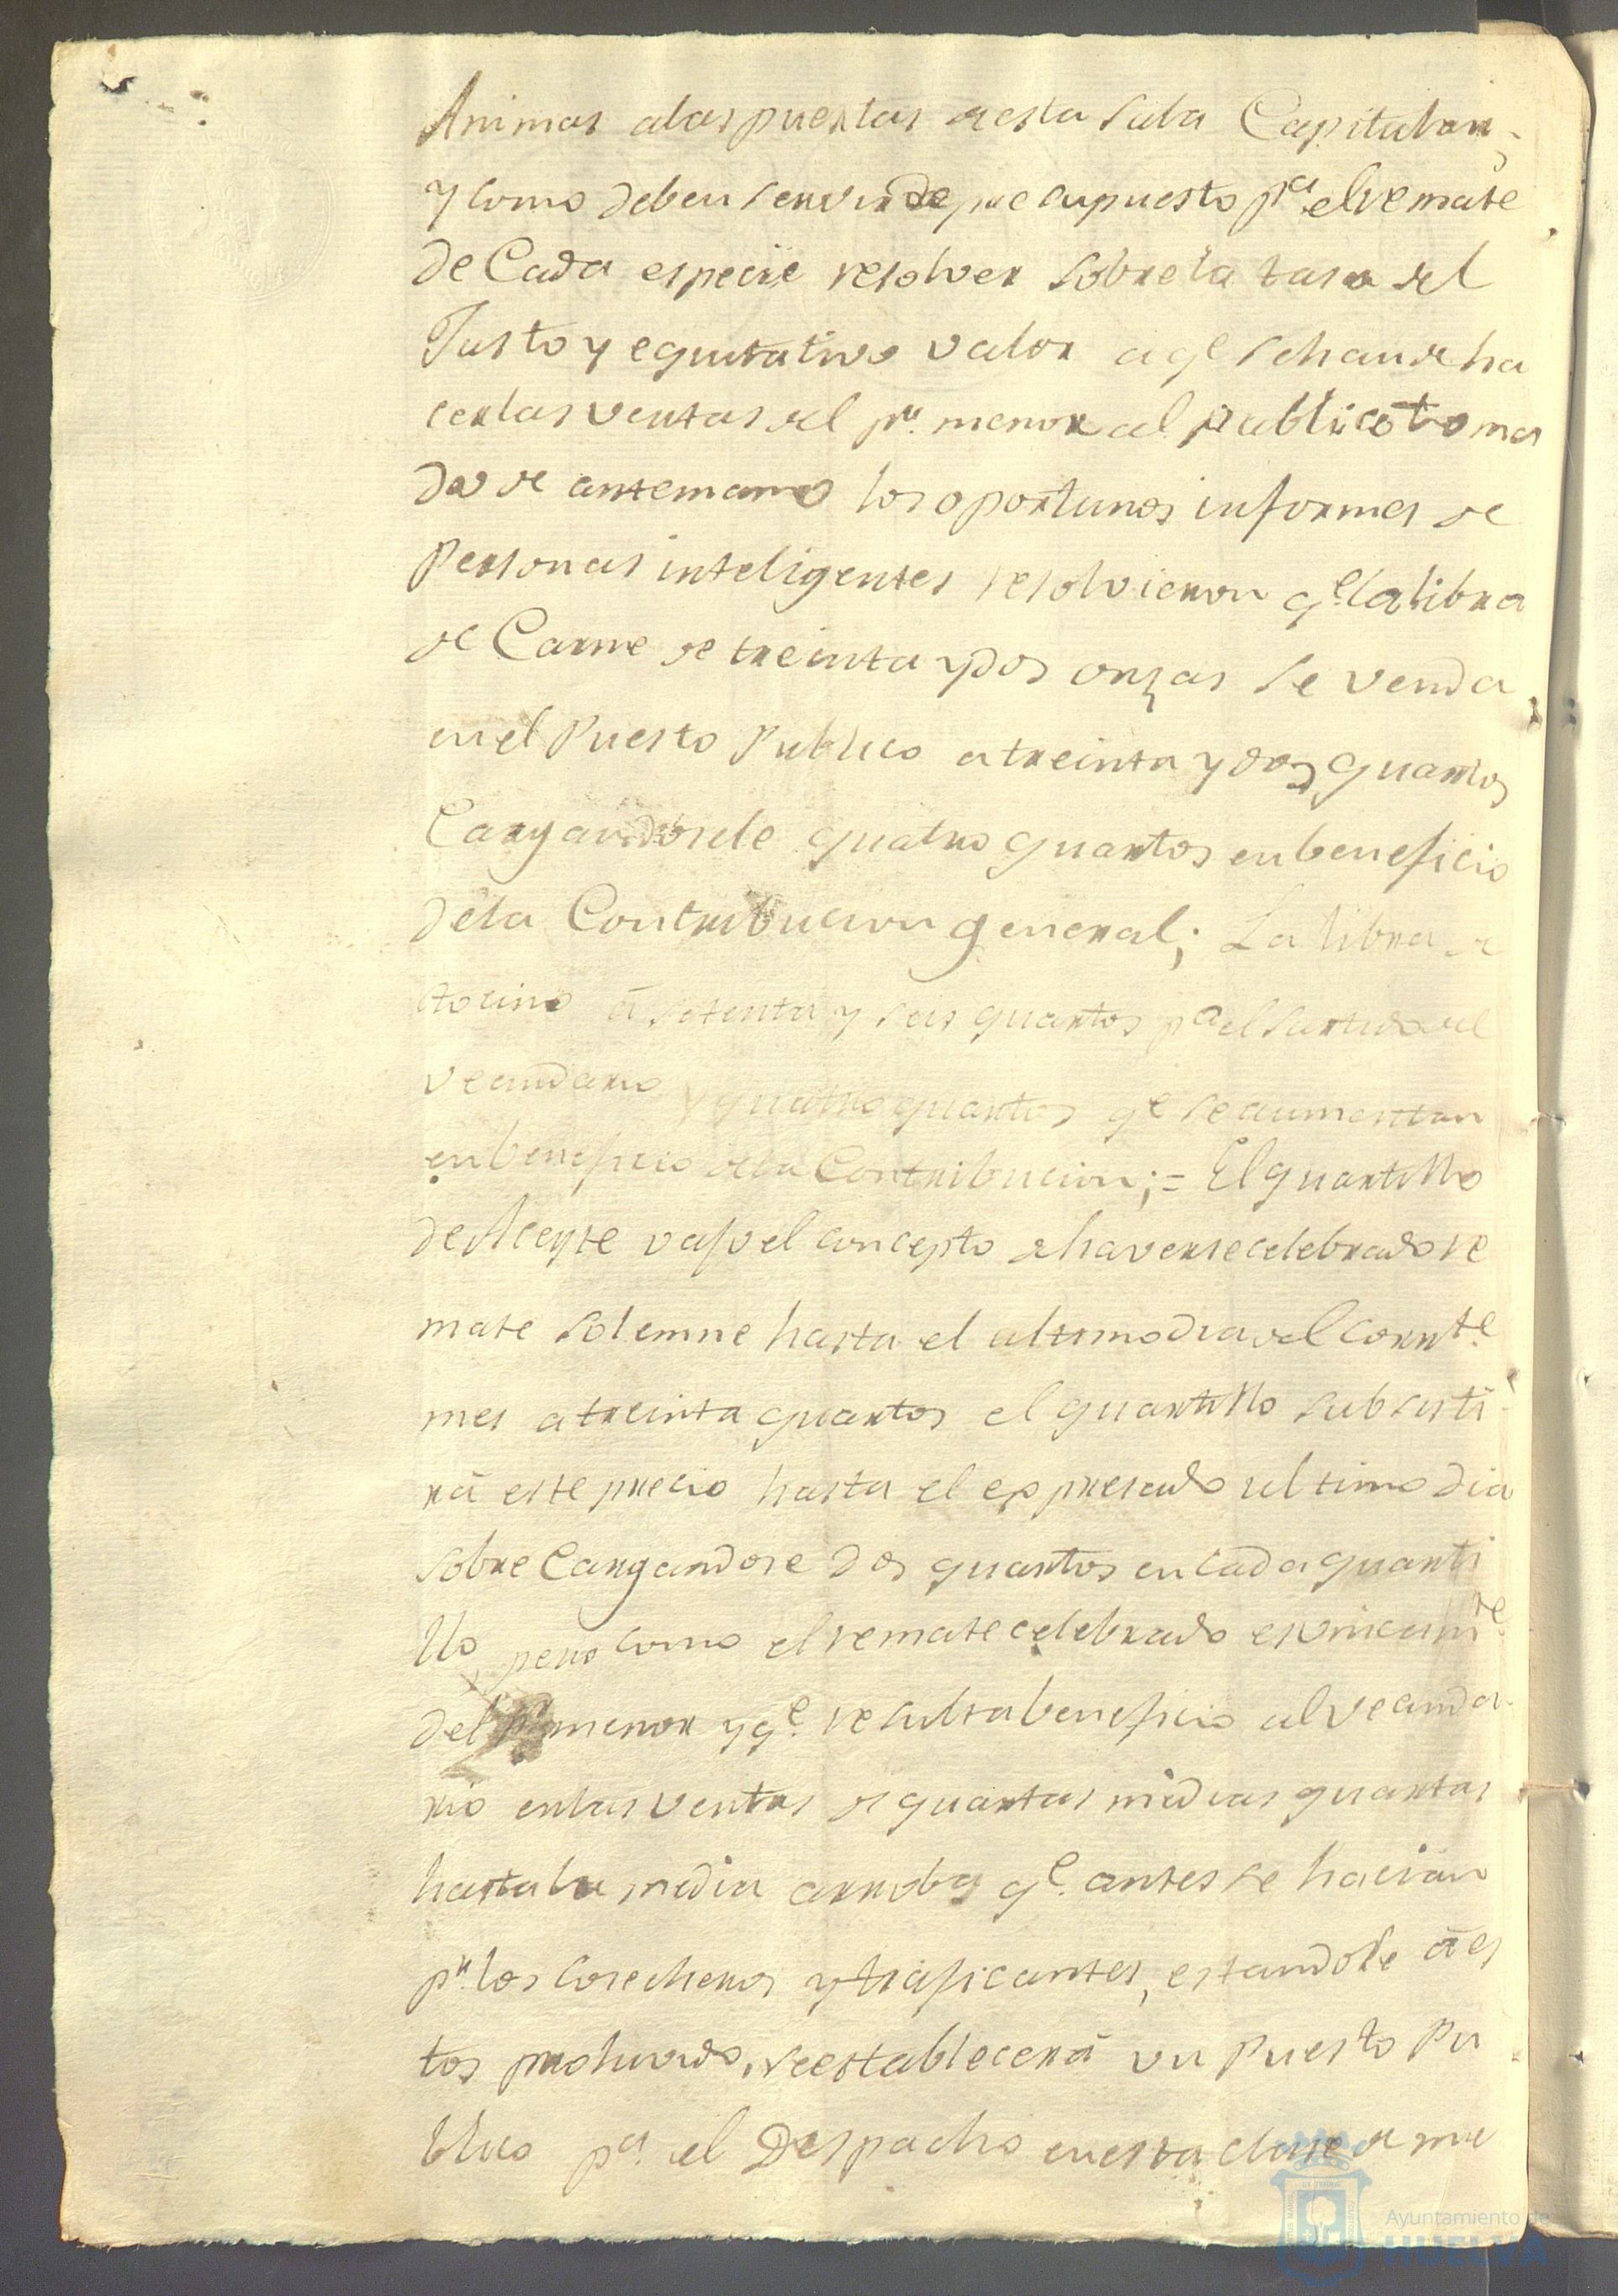 Animas alas puertas de esta sala Capitular;
y como deben servir de presupuesto pa. el remate
de Cada especie resolver sobre la tasa del
Justo y equitativo valor a qe se han de ha
cer las ventas del pr. menor al publico toma
do de antemano los oportunos informes de
Personas inteligentes resolvieron qe. la libra
de Carne de treinta y dos onzas se venda
en el Puesto Publico a treinta y dos quartos
Cargandosele quatro quartos en beneficio
dela Contribucion general; La libra de
tocino â setenta y seis quartos pa el surtido del
vecindario y quatro quartos qe se aumentan
en beneficio dela Contribucion; = El quartillo
de Aceyte vajo el concepto de haverse celebrado re
mate solemne hasta el ultimo dia del corrte.
mes a treinta quartos el quartillo subsisti
râ este precio hasta el expresado ultimo dia
sobre Cargandose dos quartos en cada quarti
llo, pero como el remate celebrado es unicamte.
del Pr menor y qe. resulta beneficio al vecinda
rio en las ventas de quartas medias quartas
hasta la media arroba qe. antes se hacian
pr. los cosecheros y traficantes, estandole â es
tos prohivido, se establecerâ un Puesto Pu
blico pa. el Despacho en esta clase de me
Ayuntamiento de
HUELVA